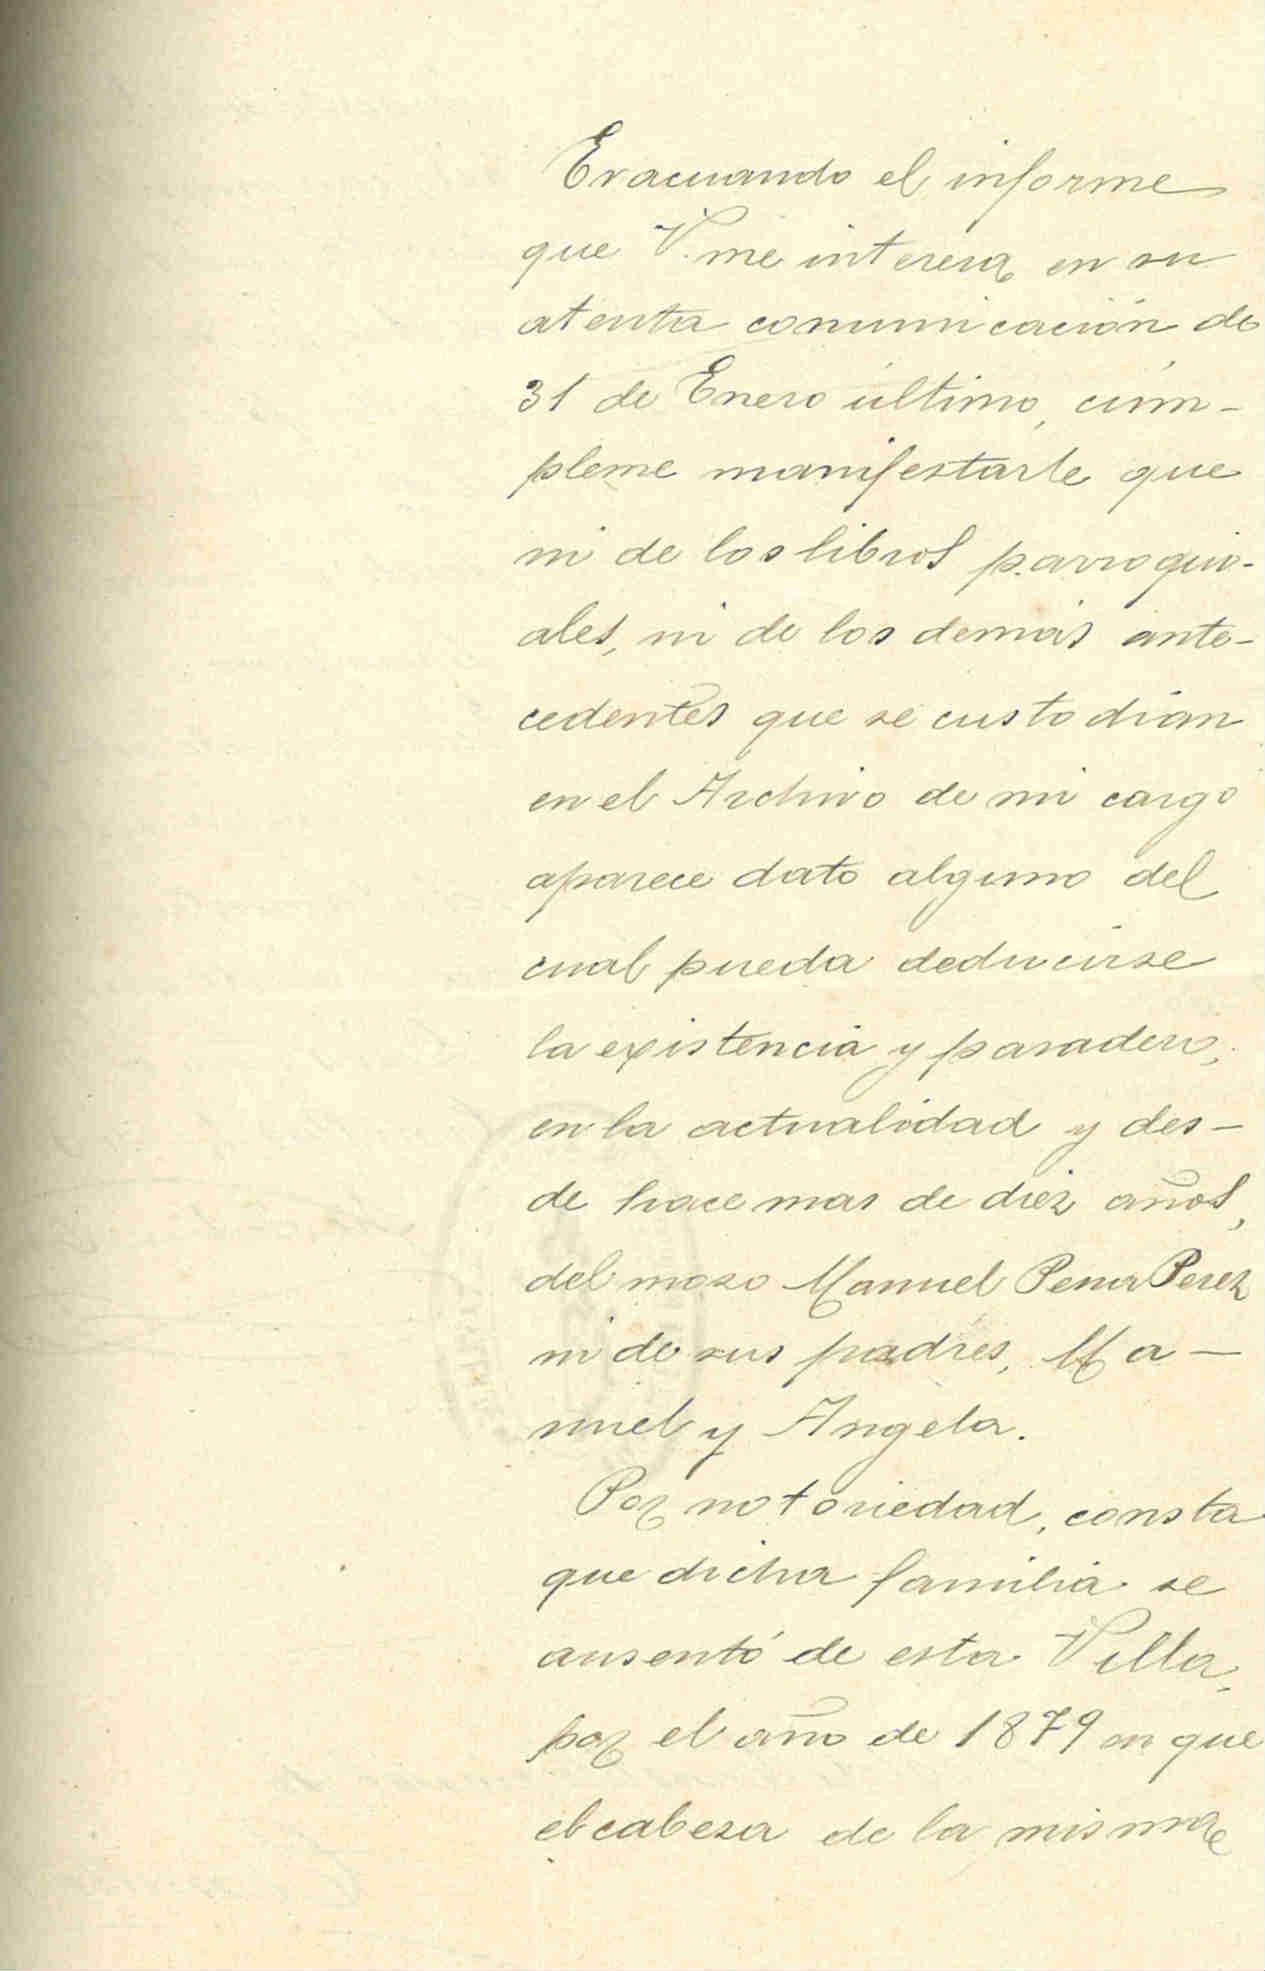 Evacuando el informe
que V. me interesa en su
atenta comunicación de
31 de Enero último, cúm-
pleme manifestarle que
ni de los libros parroqui-
ales, ni de los demás ante-
cedentes que se custodian
en el Archivo de mi cargo
aparece dato alguno del
cual pueda deducirse
la existencia y paradero,
en la actualidad y des-
de hace mas de diez años,
del mozo Manuel Pena Perez
ni de sus padres, Ma-
nuel y Angela.
Por notoriedad, consta
que dicha familia se
ausentó de esta Villa,
por el año de 1879 en que
el cabeza de la misma